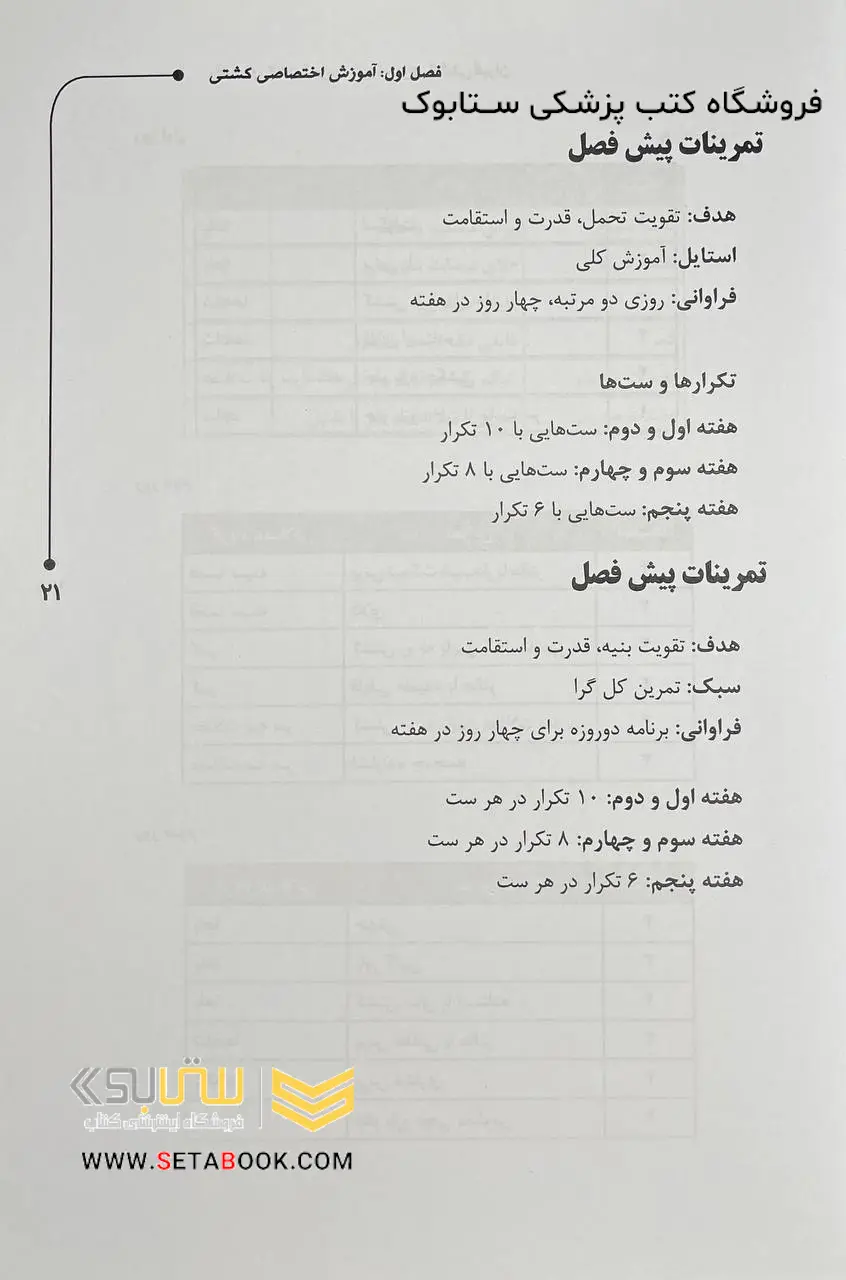 فصل اول: آموزش اختصاصی کشتی
فروشگاه کتب پزشکی ستابوک
تمرینات پیش فصل
هدف: تقویت تحمل، قدرت و استقامت
استایل: آموزش کلی
فراوانی: روزی دو مرتبه، چهار روز در هفته
تکرارها و ست‌ها
هفته اول و دوم: ست‌هایی با ۱۰ تکرار
هفته سوم و چهارم: ست‌هایی با ۸ تکرار
هفته پنجم: ست‌هایی با ۶ تکرار
تمرینات پیش فصل
۲۱
هدف: تقویت بنیه، قدرت و استقامت
سبک: تمرین کل گرا
فراوانی: برنامه دوروزه برای چهار روز در هفته
هفته اول و دوم: ۱۰ تکرار در هر ست
هفته سوم و چهارم: ۸ تکرار در هر ست
هفته پنجم: ۶ تکرار در هر ست
ستابوک
فروشگاه اینترنتی کتاب
WWW.SETABOOK.COM